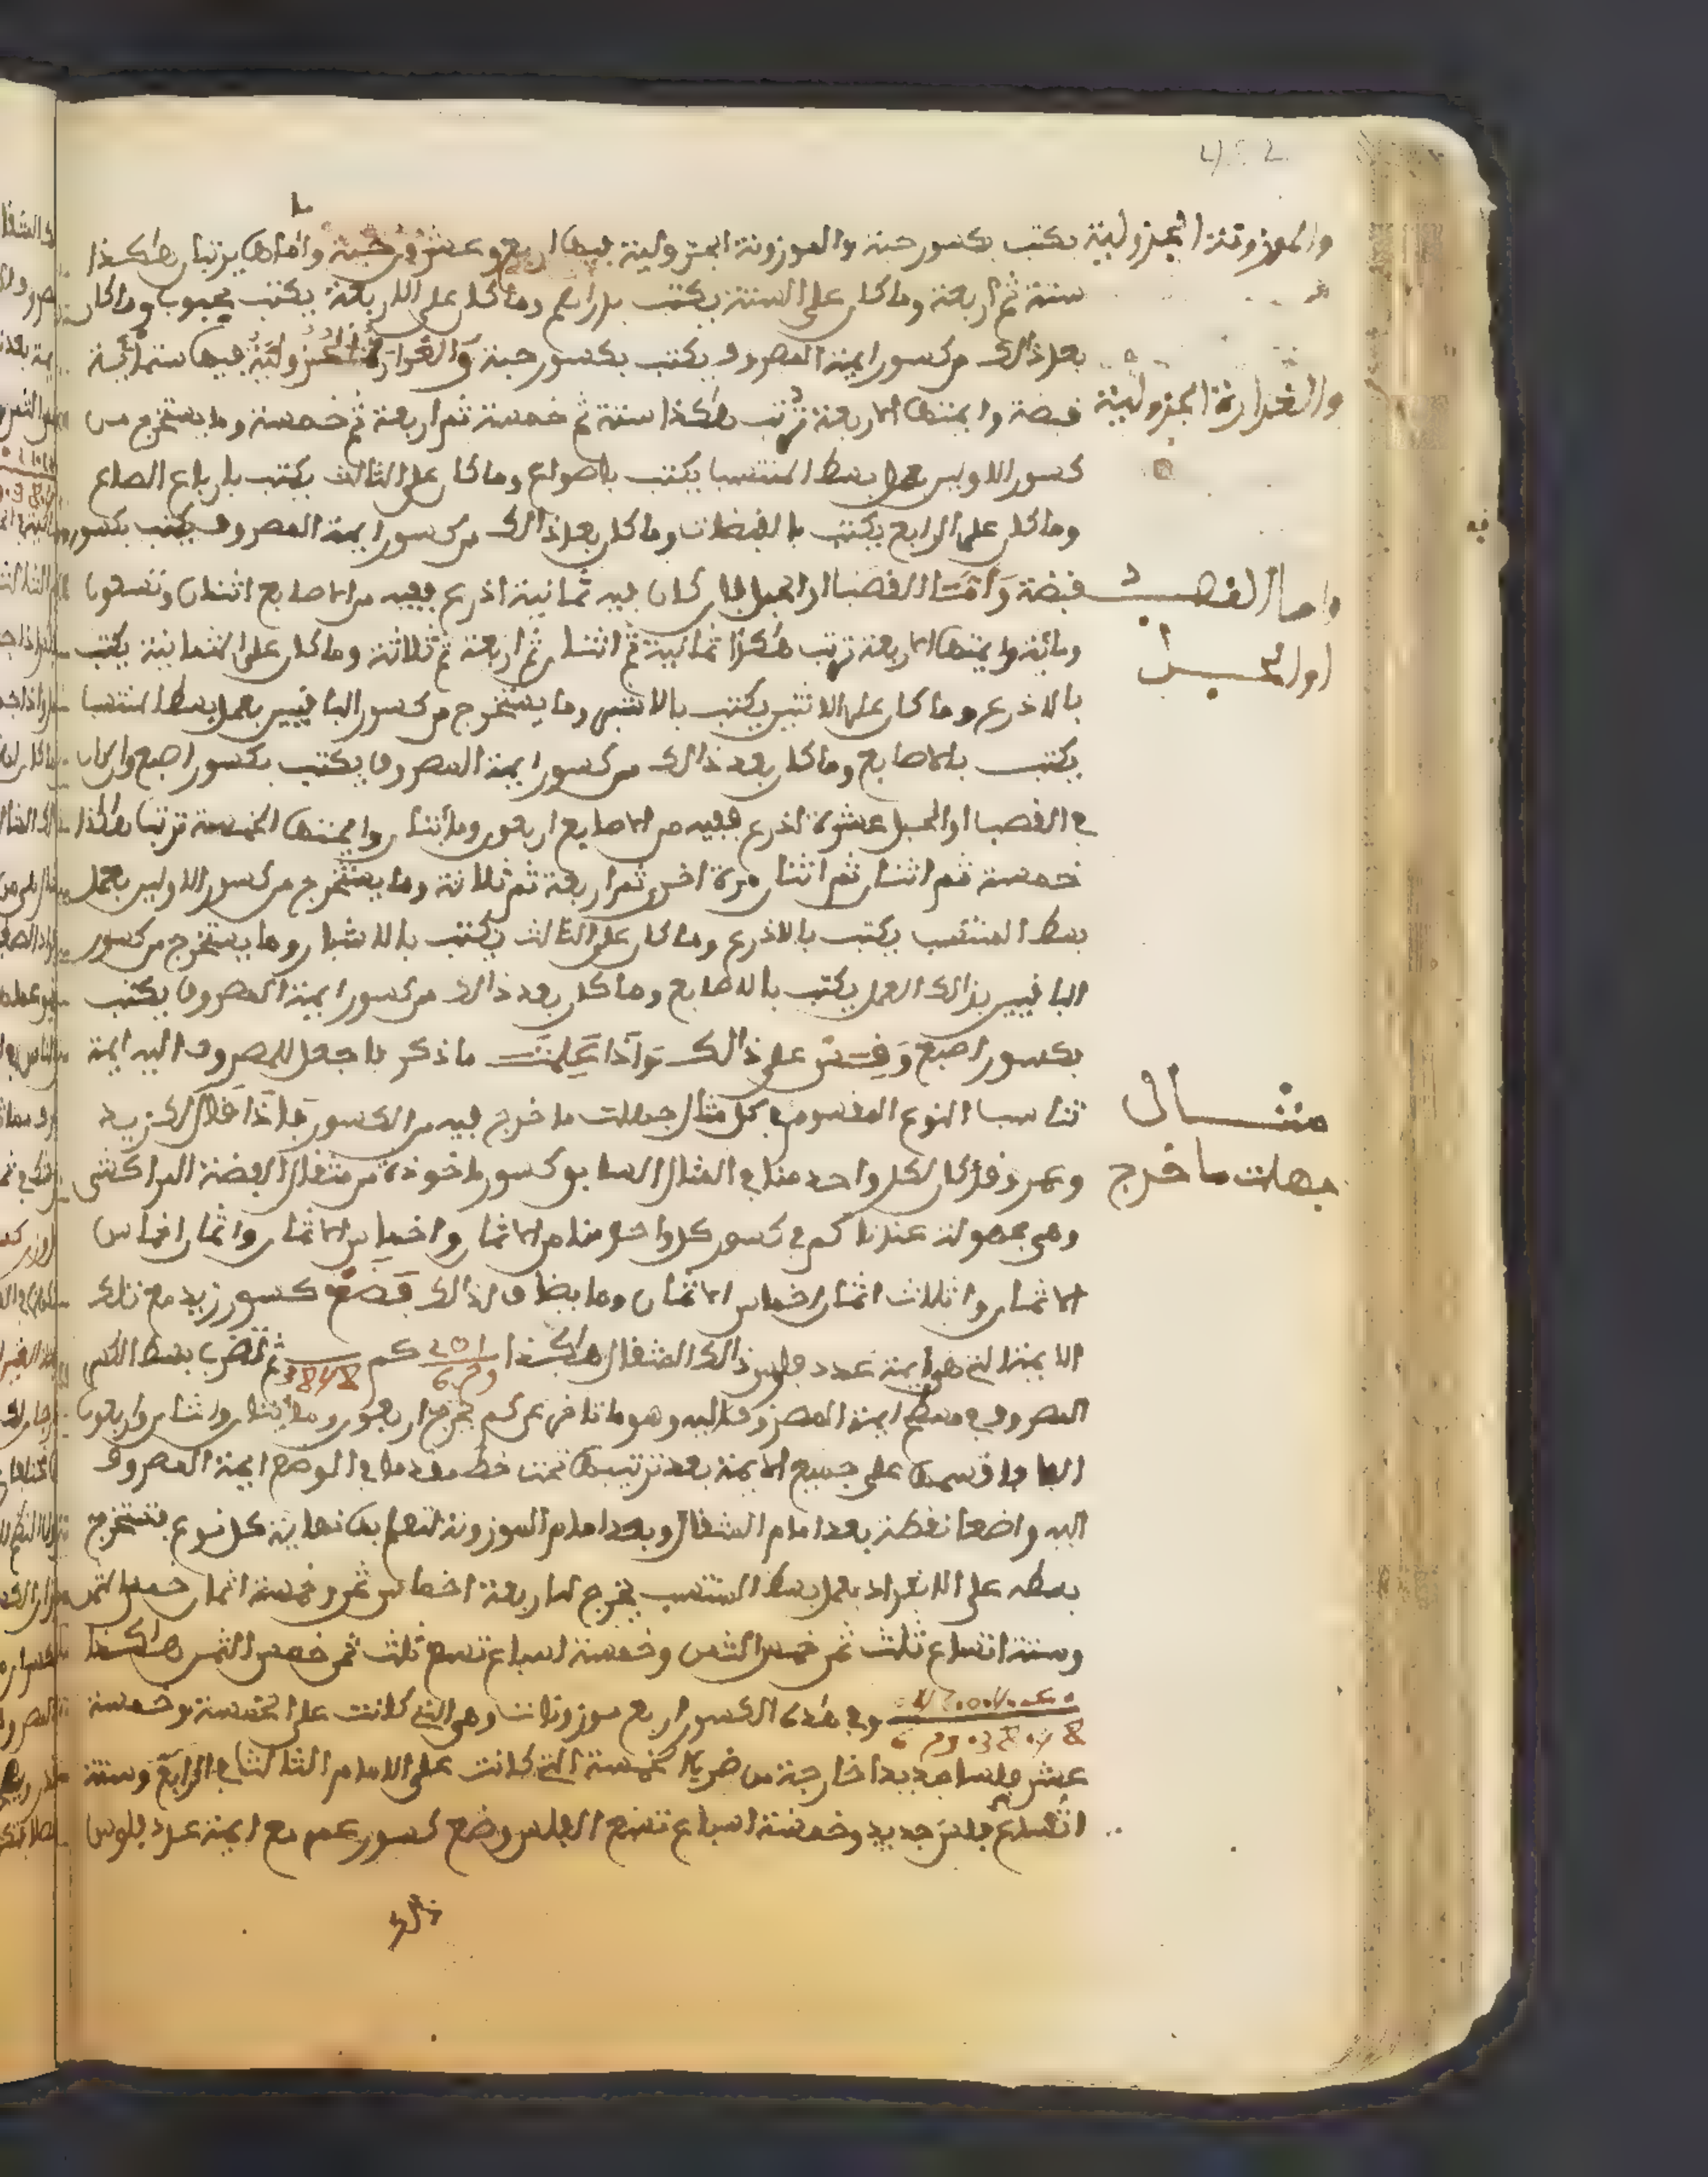 452
والموزونة الجزولية
يكتب بكسور حبة والموزونة الجزولية فيها اربع وعشرون حبة واماماها يرتبان هاكذا
ستة ثم اربعة وما كان على الستة يكتب بدراهم وما كان على الاربعة يكتب بحبوب وما كان
بعد ذالك من كسور ايمة المصروف يكتب بكسور حبة والغرارة الجزولية فيها ستمائية
والغرارة الجزولية
قبضة وايمتها الاربعة ترتب هاكذا ستة ثم خمسة ثم اربعة ثم خمسة وما يستخرج من
كسور الاولين بعمل بسط المنتسب يكتب باصواع وما كان على الثالث يكتب بارباع الصاع
وما كان على الرابع يكتب بالقبضات وما كان بعد ذالك من كسور ايمة المصروف يكتب بكسور
واما القصب
قبضة واما القصب او الحبل فان كان فيه ثمانية اذرع ففيه من الاصابع اثنان وتسعون
او الحبل
ومائة وايمتها الاربعة ترتب هاكذا ثمانية ثم اثنان ثم اربعة ثم ثلاثة وما كان على الثمانية يكتب
بالاذرع وما كان على الاثنين يكتب بالاشبار وما يستخرج من كسور الباقيين بعمل بسط المنتسب
يكتب بالاصابع وما كان بعد ذالك من كسور ايمة المصروف يكتب بكسور اصبع وان كان
في القصب او الحبل عشرة اذرع ففيه من الاصابع اربعون ومائتان وايمتها الخمسة ترتب هاكذا
خمسة ثم اثنان ثم اثنان مرة اخرى ثم اربعة ثم ثلاثة وما يستخرج من كسور الاولين بعمل
بسط المنتسب يكتب بالاذرع وما كان على الثالث يكتب بالاشبار وما يستخرج من كسور
الباقيين بذالك العمل يكتب بالاصابع وما كان بعد ذالك من كسور ايمة المصروف يكتب
بكسور اصبع وقس على ذالك واذا علمت ما ذكر فاجعل للمصروف اليه ايمة
مثال
تناسب النوع المقسوم في كل مثال جهلت ما خرج فيه من الكسور فاذا قال لك زيد
جهلت ما خرج
وعمرو قد كان لكل واحد منا في المثال السابق كسور ماخوذة من مثقال الفضة المراكشي
وهي مجهولة عندنا كم في كسور كل واحد منا من الاثمان واخماس الاثمان واثمان اخماس
الاثمان واثلاث اثمان اخماس الاثمان وما يضاف لذالك فضع كسور زيد مع تلك
الايمة التي هي ايمة عدد فلوس ذالك المثقال هاكذا كم ثم تضرب بسط الكسر
المصروف في مسطح ايمة المصروف اليه وهو ما تاخر عن كم يخرج اربعون ومائتان واثنان واربعون
الفا فاقسمها على جميع الايمة بعد ترتيبها تحت خط مقدما في الوضع ايمة المصروف
اليه واضعا نقطة بعد امام المثقال وبعد امام الموزونة لتعلم بها نهاية كل نوع فتستخرج
بسطه على الانفراد بعمل بسط المنتسب يخرج لنا اربعة اخماس ثمن وخمسة اثمان خمس الثمن
وستة اتساع ثلث ثمن خمس الثمن وخمسة اسباع تسع ثلث ثمن خمس الثمن هاكذا
وفي هذه الكسور اربع موزونات وهي التي كانت على الخمسة وخمسة
عشر فلسا جديدا خارجة من ضرب الخمسة التي كانت على الامام الثالث في الرابع وستة
اتساع فلس جديد وخمسة اسباع تسع الفلس وضع كسور عمر مع ايمة عدد فلوس
ذالك